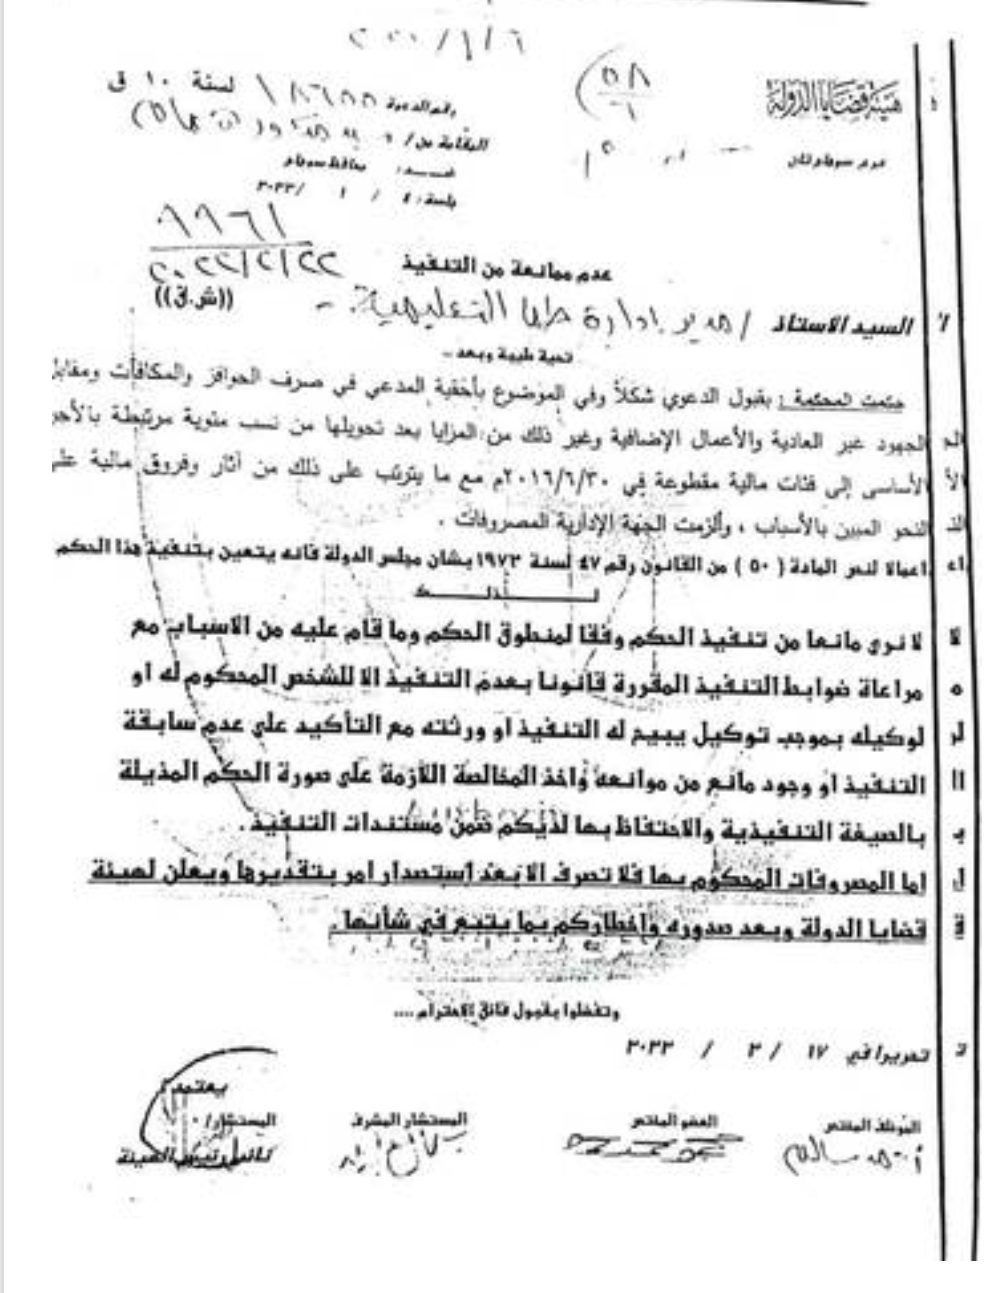 هيئة قضايا الدولة
٥٨
٦
رقم الدعوة ١٨٦٥٥ لسنة ١٠ ق
المقامة من /
ضــد : محافظ سوهاج
جلسة : ٤ / ١ / ٢٠٢٢
٩٩٦١
٢٠٢٢/٢/٢٢
عدم ممانعة من التنفيذ
((ش.ق))
السيد الاستاذ / مدير إدارة طما التعليمية
تحية طيبة وبعد ..
حكمت المحكمة : بقبول الدعوي شكلاً وفي الموضوع بأحقية المدعي في صرف الحوافز والمكافآت ومقابل
الجهود غير العادية والأعمال الإضافية وغير ذلك من المزايا بعد تحويلها من نسب مئوية مرتبطة بالأجر
الأساسى إلى فئات مالية مقطوعة في ٢٠١٦/٦/٣٠م مع ما يترتب على ذلك من آثار وفروق مالية على
النحو المبين بالأسباب ، وألزمت الجهة الإدارية المصروفات .
اعمالا لنص المادة ( ٥٠ ) من القانون رقم ٤٧ لسنة ١٩٧٢ بشان مجلس الدولة فانه يتعين بتنفيذ هذا الحكم
لـــــــذلـــــــك
لا نرى مانعا من تنفيذ الحكم وفقا لمنطوق الحكم وما قام عليه من الاسباب مع
مراعاة ضوابط التنفيذ المقررة قانونا بعدم التنفيذ الا للشخص المحكوم له او
لوكيله بموجب توكيل يبيح له التنفيذ او ورثته مع التأكيد على عدم سابقة
التنفيذ او وجود مانع من موانعه وأخذ المخالصة اللازمة على صورة الحكم المذيلة
بالصيغة التنفيذية والاحتفاظ بها لديكم ضمن مستندات التنفيذ .
اما المصروفات المحكوم بها فلا تصرف الا بعد إستصدار امر بتقديرها ويعلن لهيئة
قضايا الدولة وبعد صدوره وإخطاركم بما يتبع في شأنها .
وتفضلوا بقبول فائق الاحترام ....
تحريرا في ١٧ / ٢ / ٢٠٢٢
الموظف المختص
العضو المختص
المستشار المشرف
يعتمد /
المستشار /
نائب رئيس الهيئة